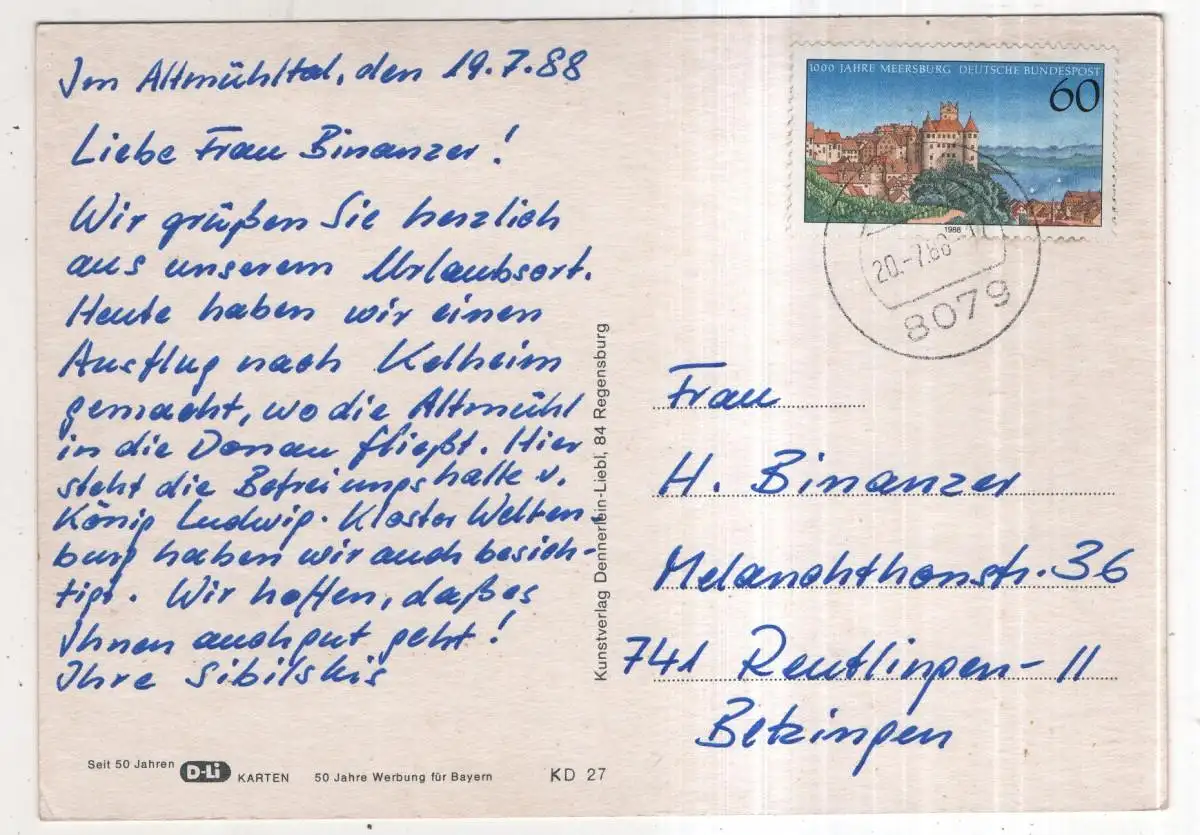 Im Altmühltal, den 19.7.88
Liebe Frau Binanzer!
Wir grüßen Sie herzlich
aus unserem Urlaubsort.
Heute haben wir einen
Ausflug nach Kelheim
gemacht, wo die Altmühl
in die Donau fließt. Hier
steht die Befreiungshalle v.
König Ludwig. Kloster Welten-
burg haben wir auch besich-
tigt. Wir hoffen, daß es
Ihnen auch gut geht!
Ihre Sibilskis
Seit 50 Jahren D-Li KARTEN 50 Jahre Werbung für Bayern KD 27
Kunstverlag Dennerlein-Liebl, 84 Regensburg
1000 JAHRE MEERSBURG DEUTSCHE BUNDESPOST
60
1988
20.-7.88
8079
Frau
H. Binanzer
Melanchthonstr. 36
741 Reutlingen-11
Betzingen